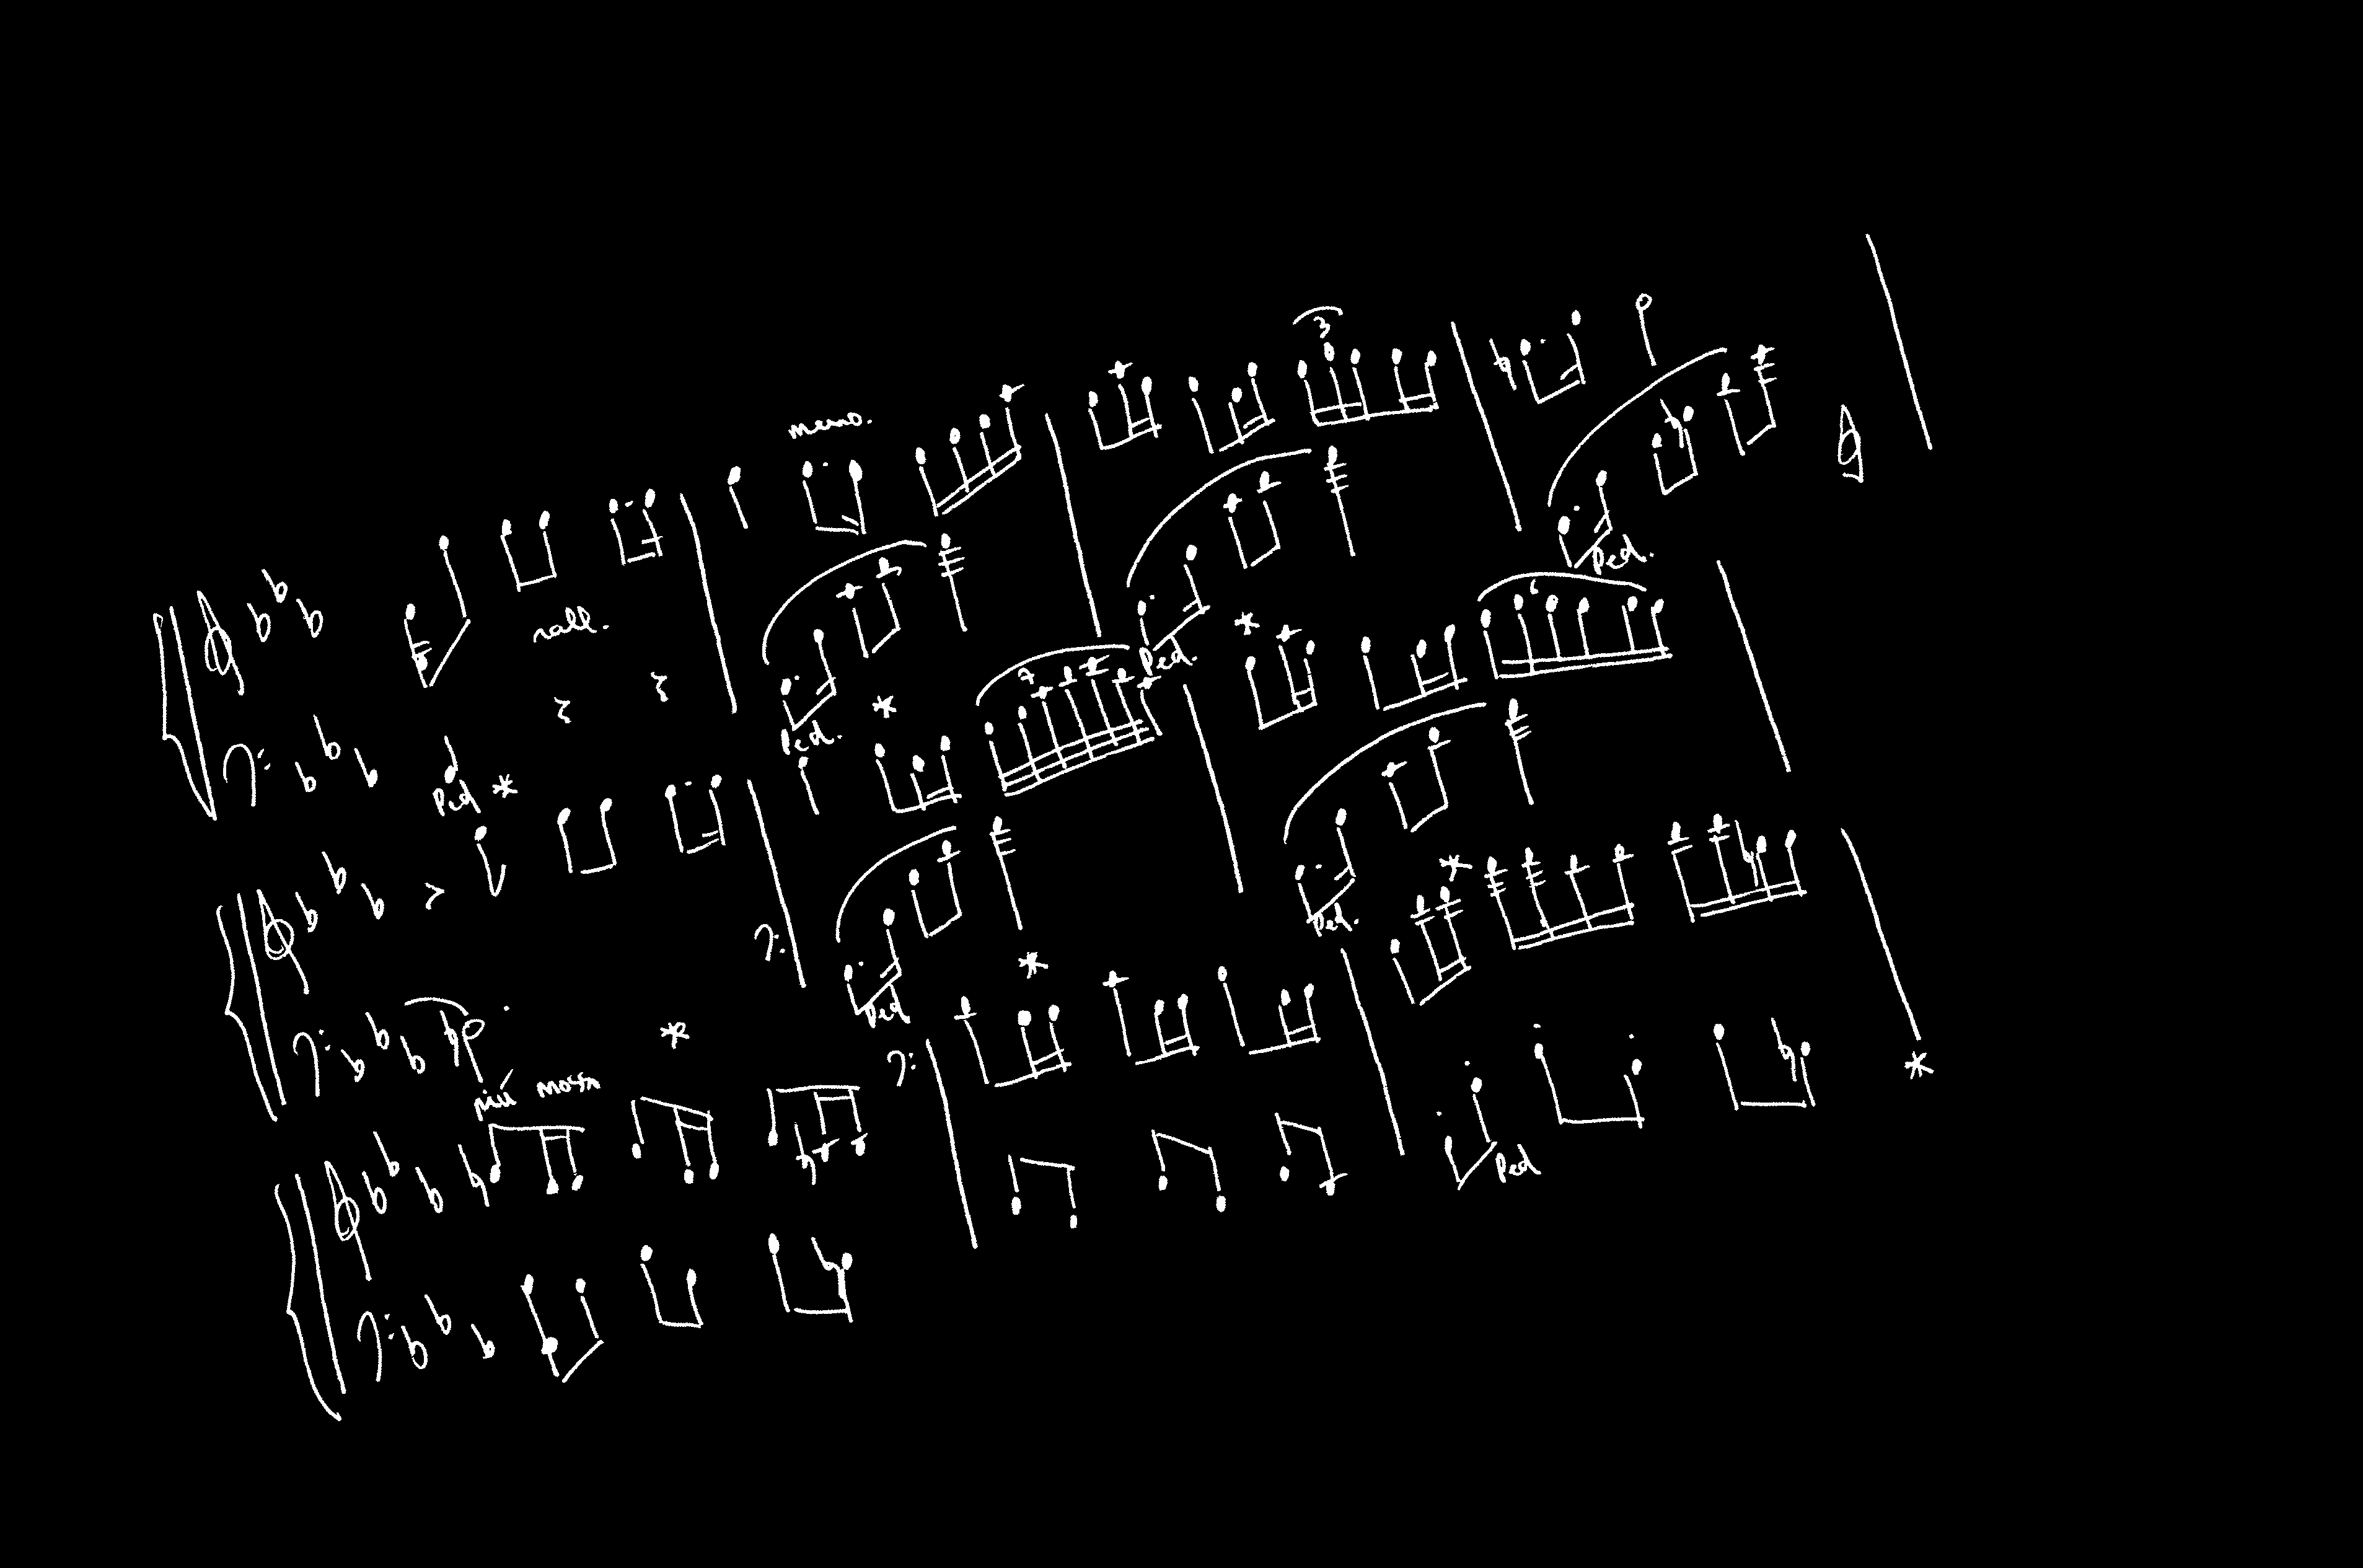 meno.
3
rall.
Ped *
Ped. *
7
Ped. *
6
Ped.
Ped *
Ped. *
*
più mosso
Ped *